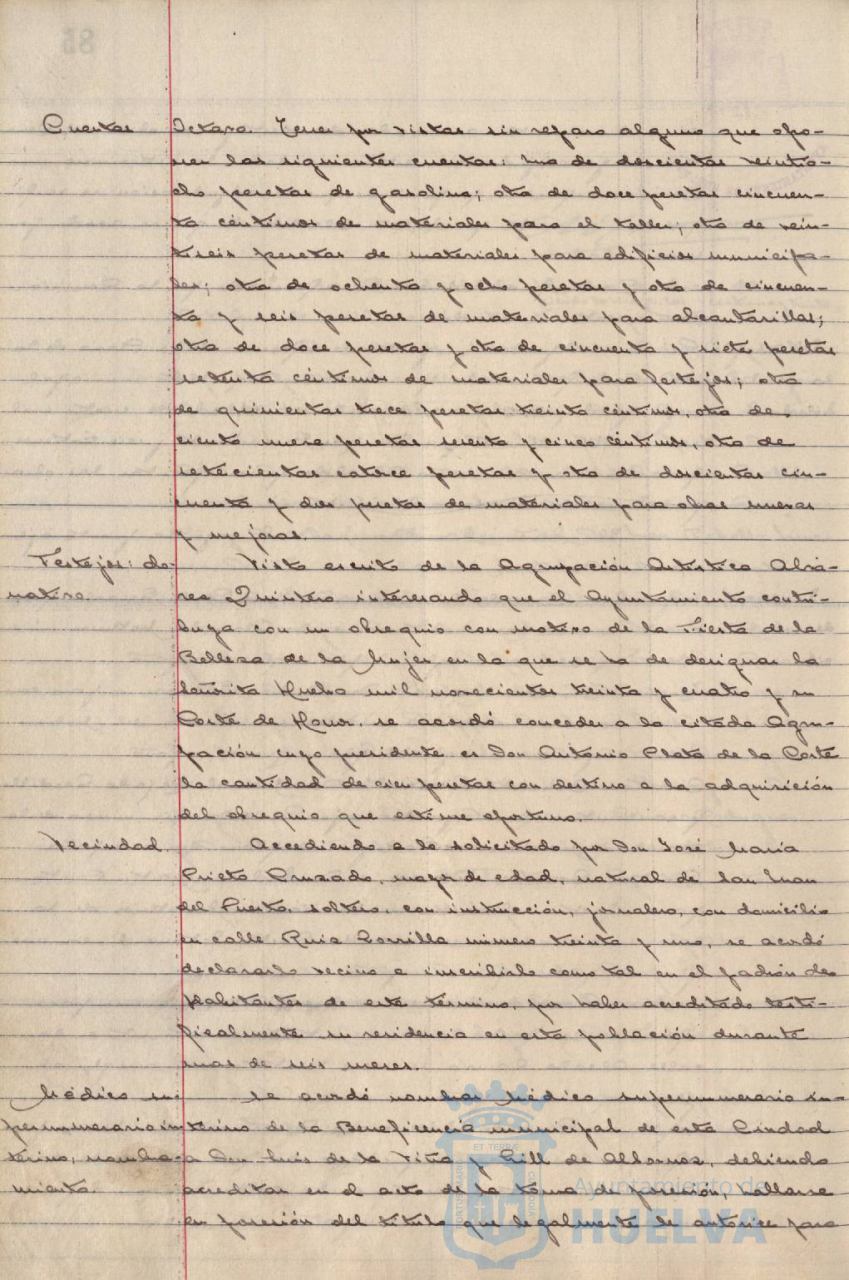 85
Cuentas Octavo. Tener por vistas sin reparo alguno que opo-
ner las siguientes cuentas: una de doscientas veintio-
cho pesetas de gasolina; otra de doce pesetas cincuen-
ta céntimos de materiales para el taller; otra de vein-
tiseis pesetas de materiales para edificios municipa-
les; otra de ochenta y ocho pesetas y otra de cincuen-
ta y seis pesetas de materiales para alcantarillas;
otra de doce pesetas y otra de cincuenta y siete pesetas
setenta céntimos de materiales para festejos; otra
de quinientas trece pesetas treinta céntimos, otra de
ciento nueve pesetas sesenta y cinco céntimos, otra de
setecientas catorce pesetas y otra de doscientas cin-
cuenta y dos pesetas de materiales para obras nuevas
y mejoras.
Festejos: do- Visto escrito de la Agrupación Artística Alva-
nativo. rez Quintero interesando que el Ayuntamiento contri-
buya con un obsequio con motivo de la Fiesta de la
Belleza de la Mujer en la que se ha de designar la
Señorita Huelva mil novecientos treinta y cuatro y su
Corte de Honor, se acordó conceder a la citada Agru-
pación cuyo presidente es Don Antonio Plata de la Corte
la cantidad de cien pesetas con destino a la adquisición
del obsequio que estime oportuno.
Vecindad. Accediendo a lo solicitado por Don José María
Prieto Cruzado, mayor de edad, natural de San Juan
del Puerto, soltero, con instrucción, jornalero, con domicilio
en calle Ruiz Zorrilla número treinta y uno, se acordó
declararlo vecino e inscribirlo como tal en el padrón de
habitantes de este término, por haber acreditado testi-
ficalmente su residencia en esta población durante
mas de seis meses.
Médico su- Se acordó nombrar Médico supernumerario in-
pernumerario in- terino de la Beneficencia municipal de esta Ciudad
terino, nombra- a Don Luis de la Viña y Gill de Albornoz, debiendo
miento. acreditar en el acto de la toma de posesión, hallarse
en posesión del título que legalmente le autorice para
Ayuntamiento de
HUELVA